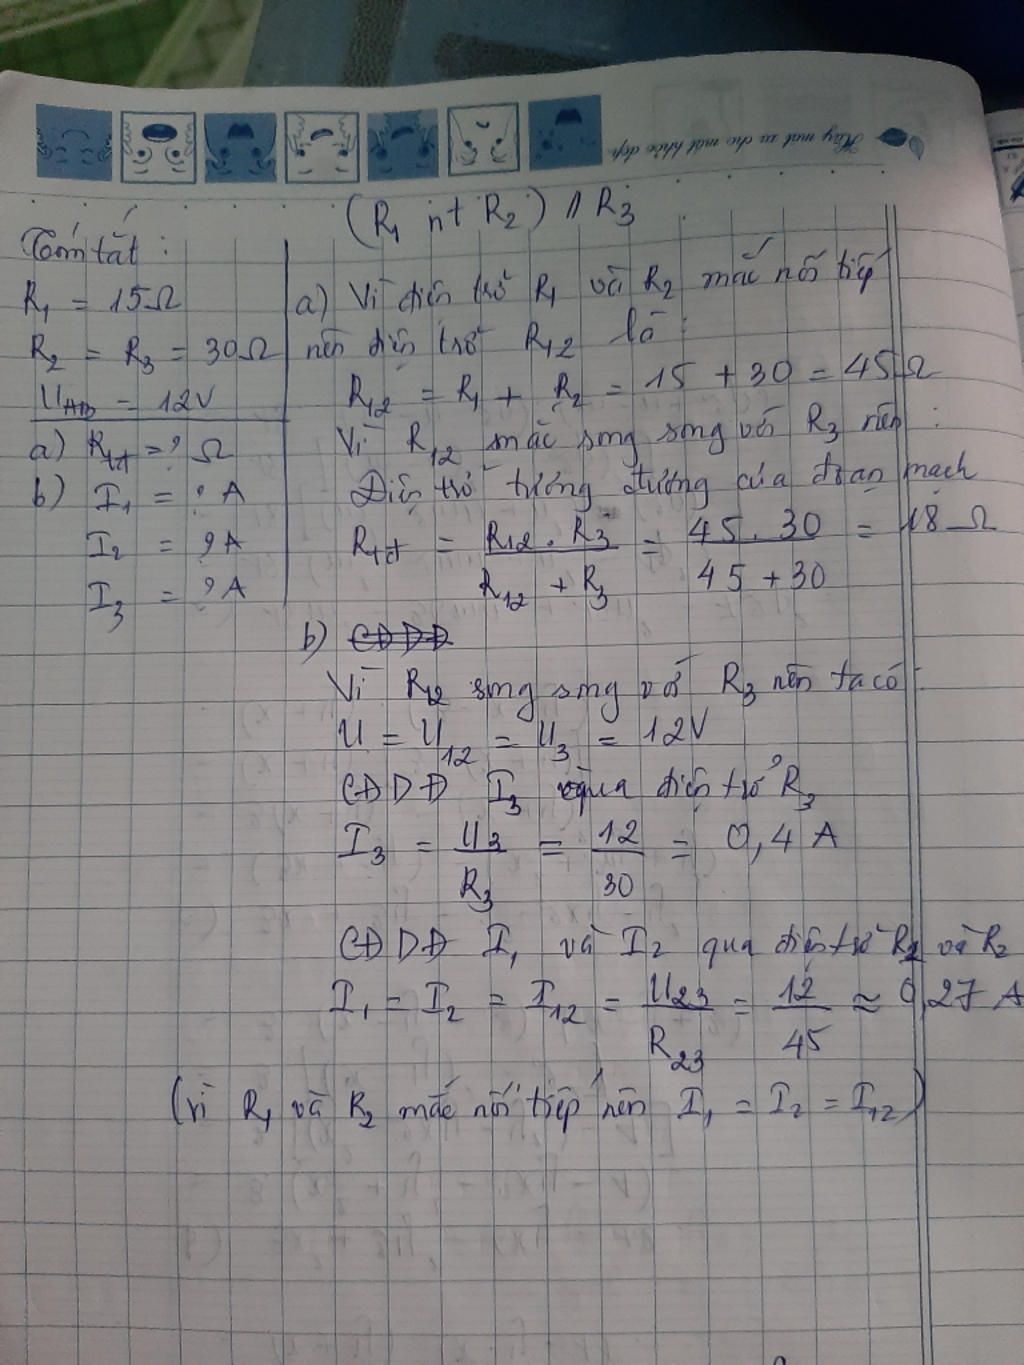 Hãy mát xa cho mắt khỏe đẹp
(R₁ nt R₂) // R₃
Tóm tắt :
R₁ = 15Ω
R₂ = R₃ = 30Ω
U_AB = 12V
a) R_tđ = ? Ω
b) I₁ = ? A
I₂ = ? A
I₃ = ? A
a) Vì điện trở R₁ và R₂ mắc nối tiếp
nên điện trở R₁₂ là :
R₁₂ = R₁ + R₂ = 15 + 30 = 45Ω
Vì R₁₂ mắc song song với R₃ nên :
Điện trở tương đương của đoạn mạch
R_tđ = R₁₂ . R₃ / R₁₂ + R₃ = 45 . 30 / 45 + 30 = 18 Ω
b) CĐDĐ
Vì R₁₂ song song với R₃ nên ta có :
U = U₁₂ = U₃ = 12V
CĐDĐ I₃ qua điện trở R₃
I₃ = U₃ / R₃ = 12 / 30 = 0,4 A
CĐDĐ I₁ và I₂ qua điện trở R₁ và R₂
I₁ = I₂ = I₁₂ = U₂₃ / R₂₃ = 12 / 45 ≈ 0,27 A
(vì R₁ và R₂ mắc nối tiếp nên I₁ = I₂ = I₁₂)